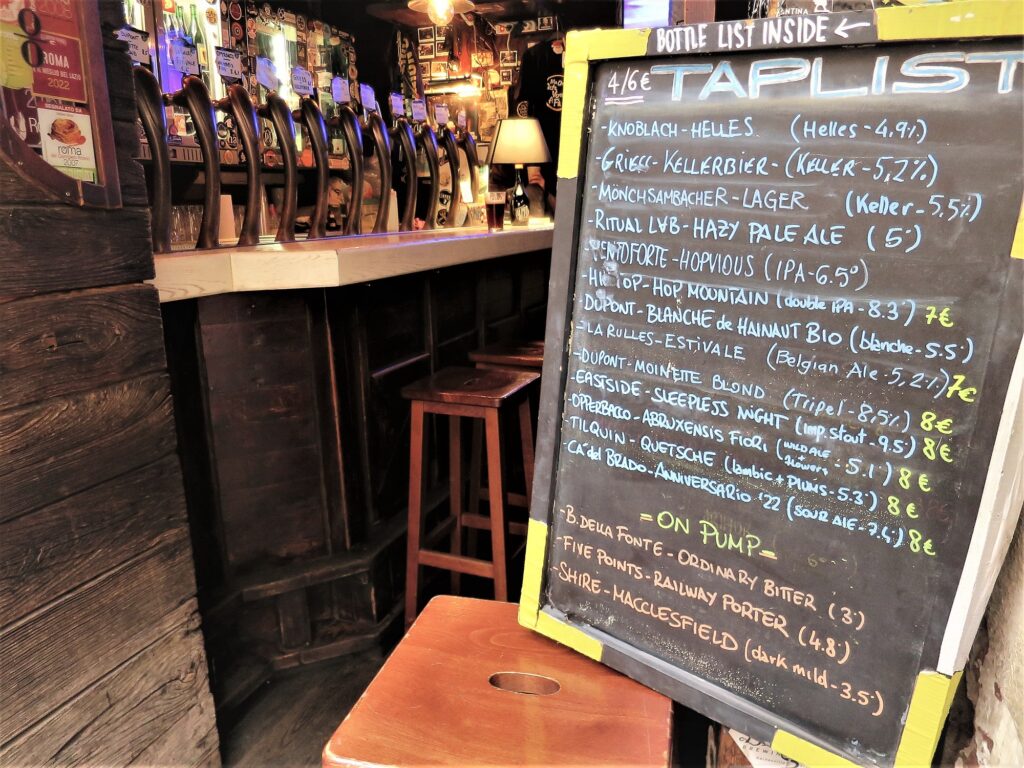 BOTTLE LIST INSIDE ←
4/6€ TAPLIST
-KNOBLACH-HELLES (Helles-4,9%)
-GRIESS-KELLERBIER-(KELLER-5,2%)
-MÖNCHSAMBACHER-LAGER (Keller-5,5%)
-RITUAL LAB-HAZY PALE ALE (5°)
-VENTOFORTE-HOPVIOUS (IPA-6.5°)
TOP-HOP MOUNTAIN (double IPA-8.3°) 7€
DUPONT-BLANCHE de HAINAUT BIO (blanche-5.5°)
-LA RULLES-ESTIVALE (Belgian Ale-5,2%) 7€
-DUPONT-MOINETTE BLOND (Tripel-8,5%) 8€
-EASTSIDE-SLEEPLESS NIGHT (imp.stout-9.5°) 8€
-OPPERBACCO-ABRUXENSIS FIORI (WILD ALE + flowers-5.1°) 8€
-TILQUIN-QUETSCHE (lambic+PLUMS-5.3°) 8€
-CA' del BRADO-ANNIVERSARIO '22 (SOUR ALE-7.4°) 8€
=ON PUMP=
-B.DELLA FONTE-ORDINARY BITTER (3°)
-FIVE POINTS-RAILWAY PORTER (4.8°)
-SHIRE-MACCLESFIELD (dark mild-3.5°)
ROMA
2022
roma
2007